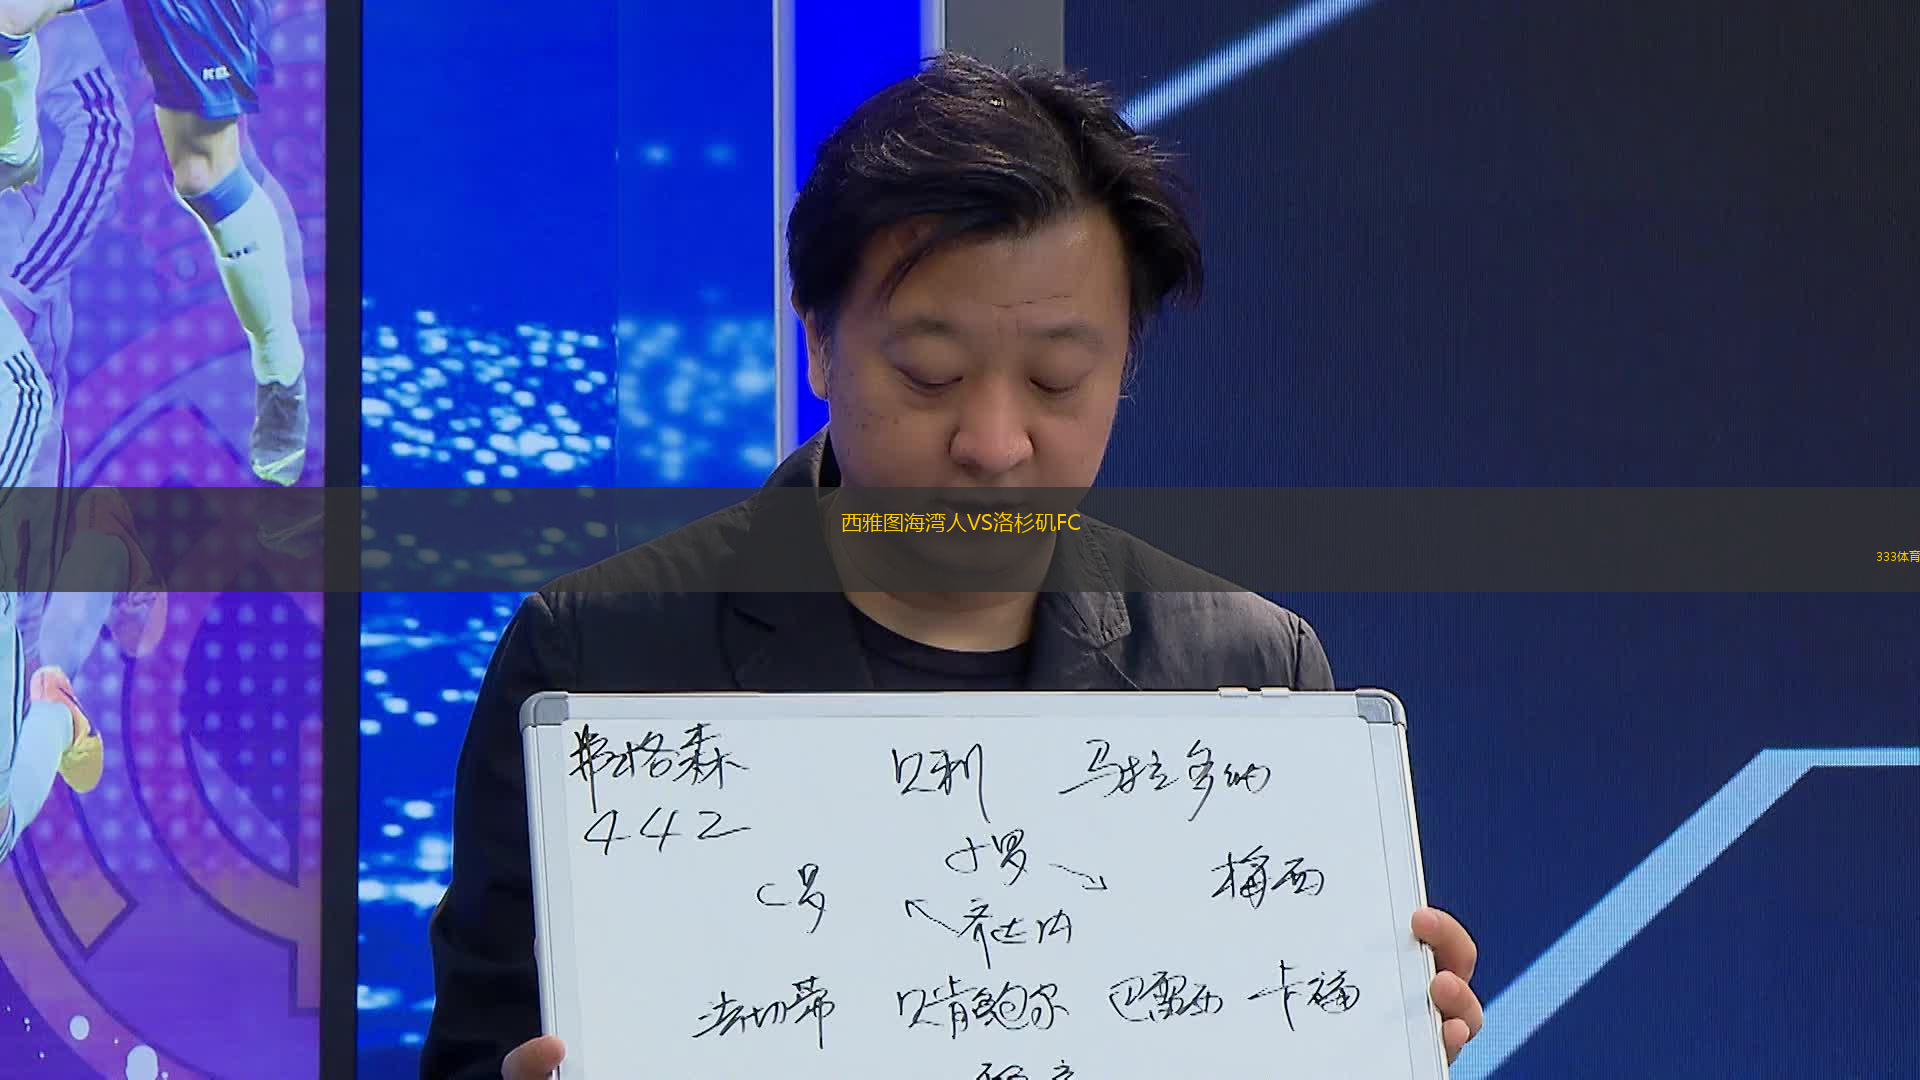 西雅图海湾人VS洛杉矶FC
333体育
弗格森 贝利 马拉多纳
442
小罗
C罗 梅西
齐达内
法切蒂 贝肯鲍尔 巴雷西 卡福